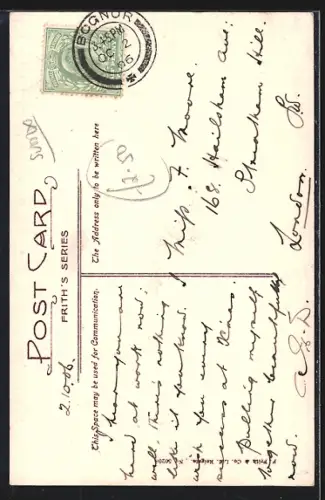 BOGNOR
3.45PM
OC 2
06
POST CARD
FRITH'S SERIES
This Space may be used for Communication.
The Address only to be written here
2.10.06
I hear you are
hard at work now;
well. There's nothing
like it you know. I
wish you every
success at
Pulling myself
together beautifully
now.
Miss F. Moore.
168 Hailsham Ave:
Streatham Hill.
London. S.W.
7.50